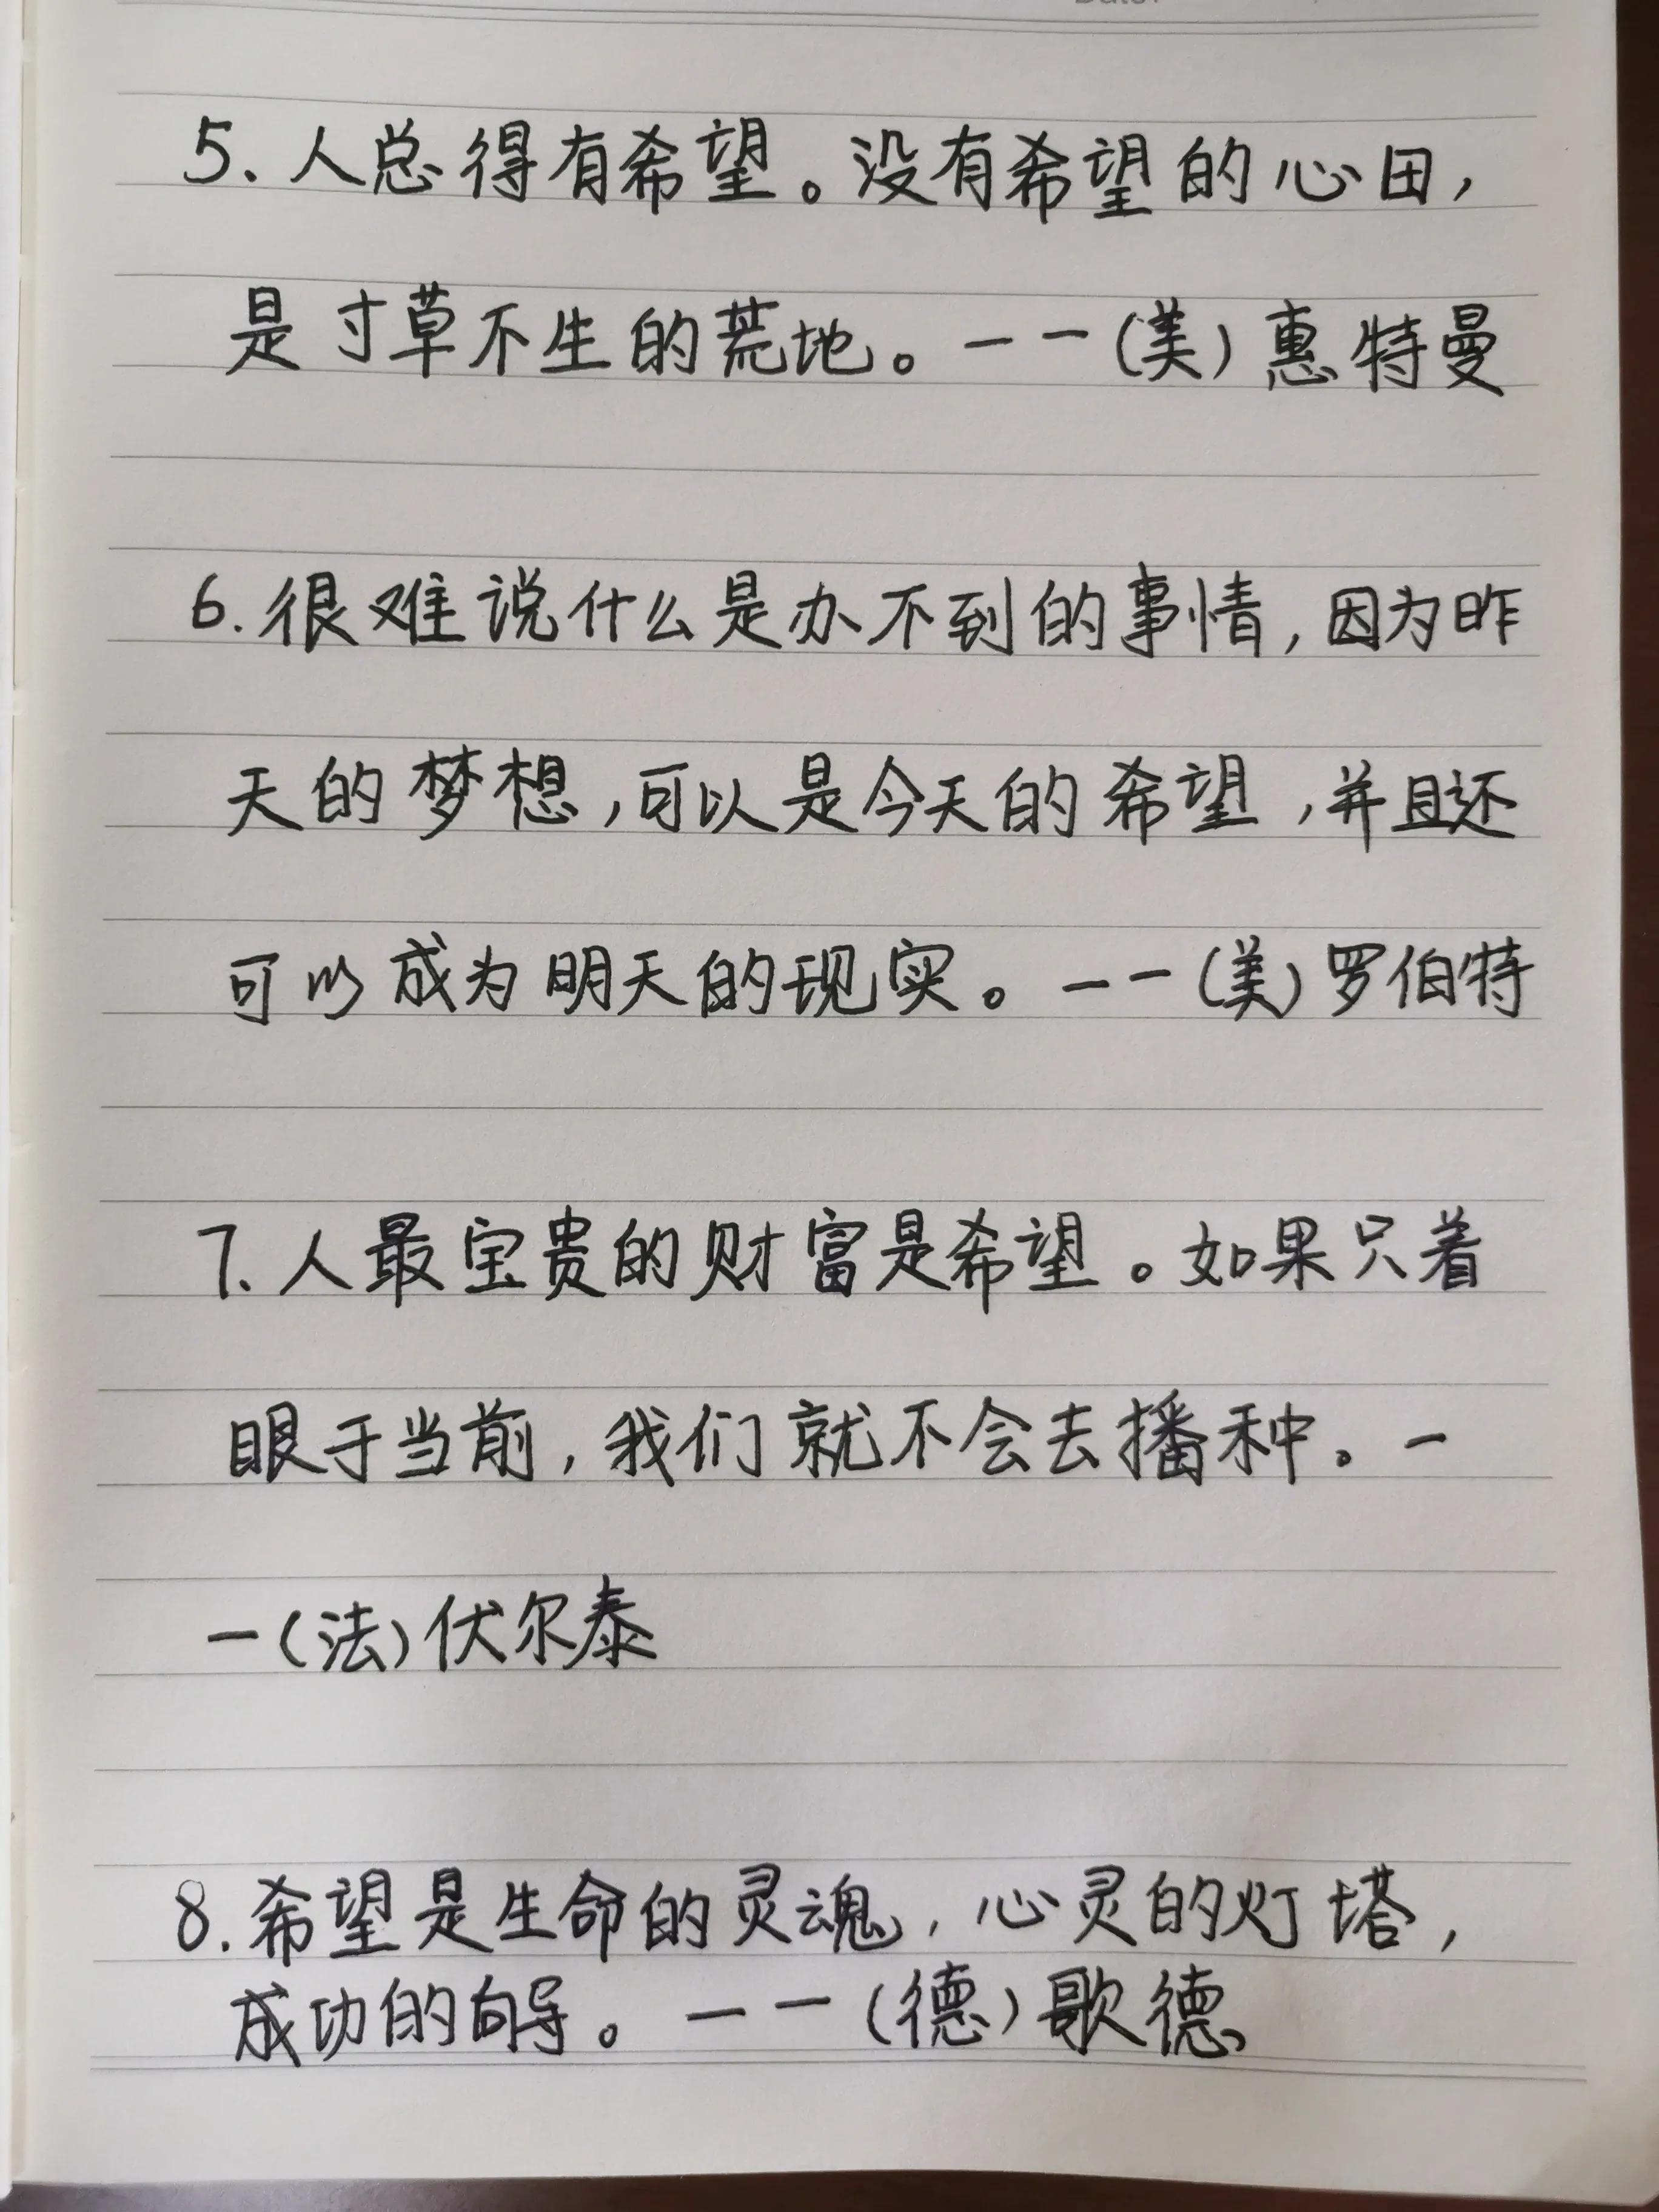 5、人总得有希望。没有希望的心田，
是寸草不生的荒地。——(美)惠特曼
6.很难说什么是办不到的事情，因为昨
天的梦想，可以是今天的希望，并且还
可以成为明天的现实。——(美)罗伯特
7、人最宝贵的财富是希望。如果只着
眼于当前，我们就不会去播种。—
—(法)伏尔泰
8.希望是生命的灵魂，心灵的灯塔，
成功的向导。——(德)歌德